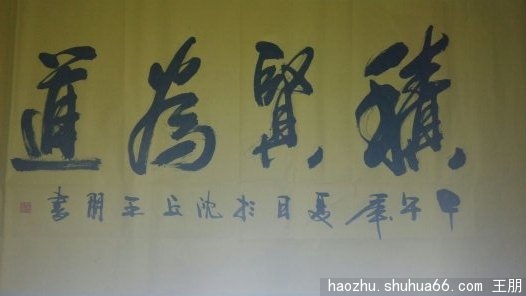 積賢為道
甲午年夏日於沈丘王朋書
haozhu.shuhua66.com 王朋